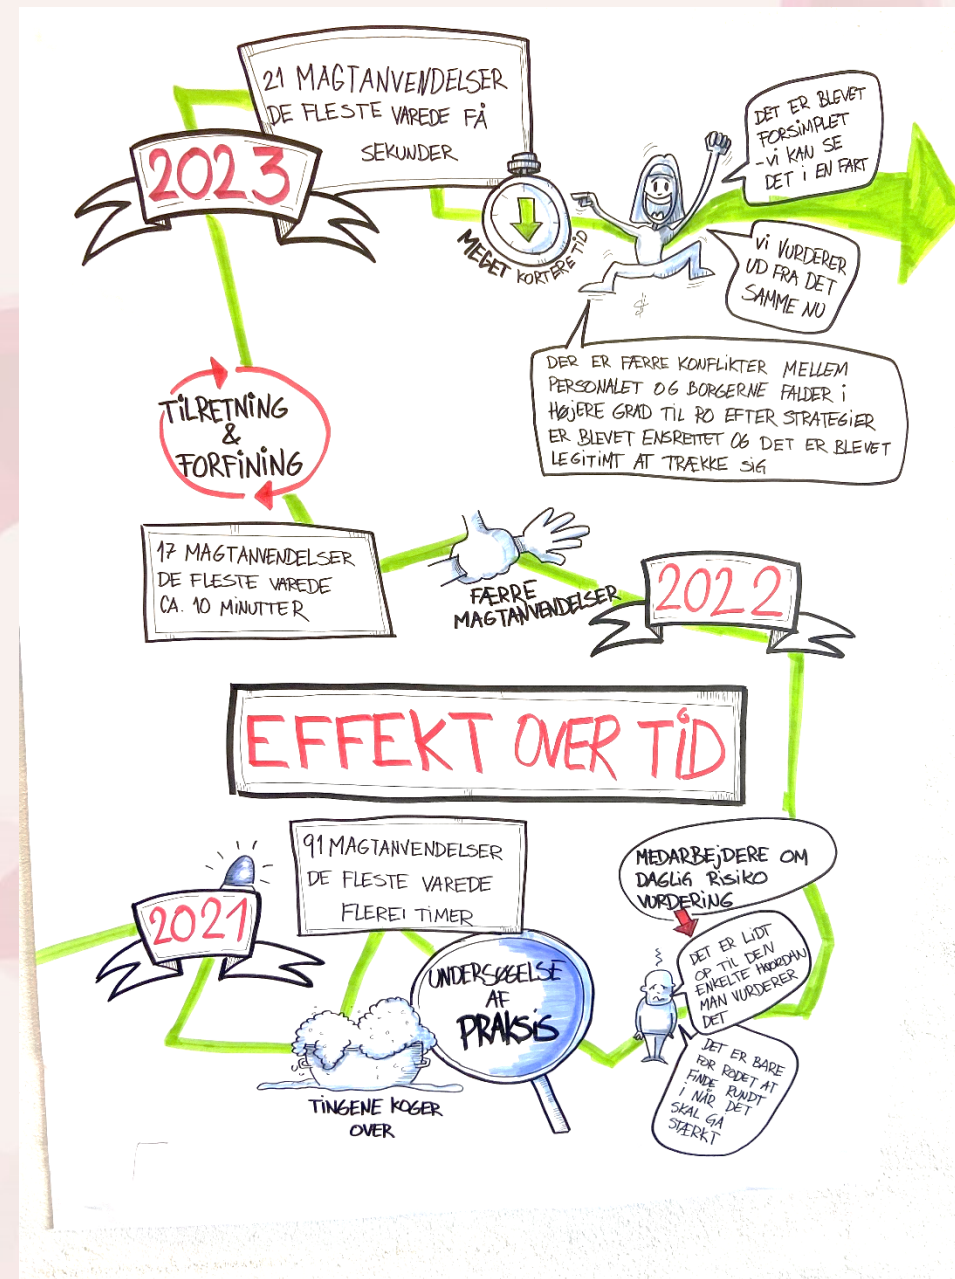 21 MAGTANVENDELSER
DE FLESTE VAREDE FÅ
SEKUNDER
2023
MEGET KORTERE TID
DET ER BLEVET
FORSIMPLET
-VI KAN SE
DET I EN FART
VI VURDERER
UD FRA DET
SAMME NU
DER ER FÆRRE KONFLIKTER MELLEM
PERSONALET OG BORGERNE FALDER I
HØJERE GRAD TIL RO EFTER STRATEGIER
ER BLEVET ENSRETTET OG DET ER BLEVET
LEGITIMT AT TRÆKKE SIG
TILRETNING
&
FORFINING
17 MAGTANVENDELSER
DE FLESTE VAREDE
CA. 10 MINUTTER
FÆRRE
MAGTANVENDELSER
2022
EFFEKT OVER TID
91 MAGTANVENDELSER
DE FLESTE VAREDE
FLEREI TIMER
2021
UNDERSØGELSE
AF
PRAKSIS
TINGENE KOGER
OVER
MEDARBEJDERE OM
DAGLIG RISIKO
VURDERING
DET ER LIDT
OP TIL DEN
ENKELTE HVORDAN
MAN VURDERER
DET
DET ER BARE
FOR RODET AT
FINDE RUNDT
I NÅR DET
SKAL GÅ
STÆRKT